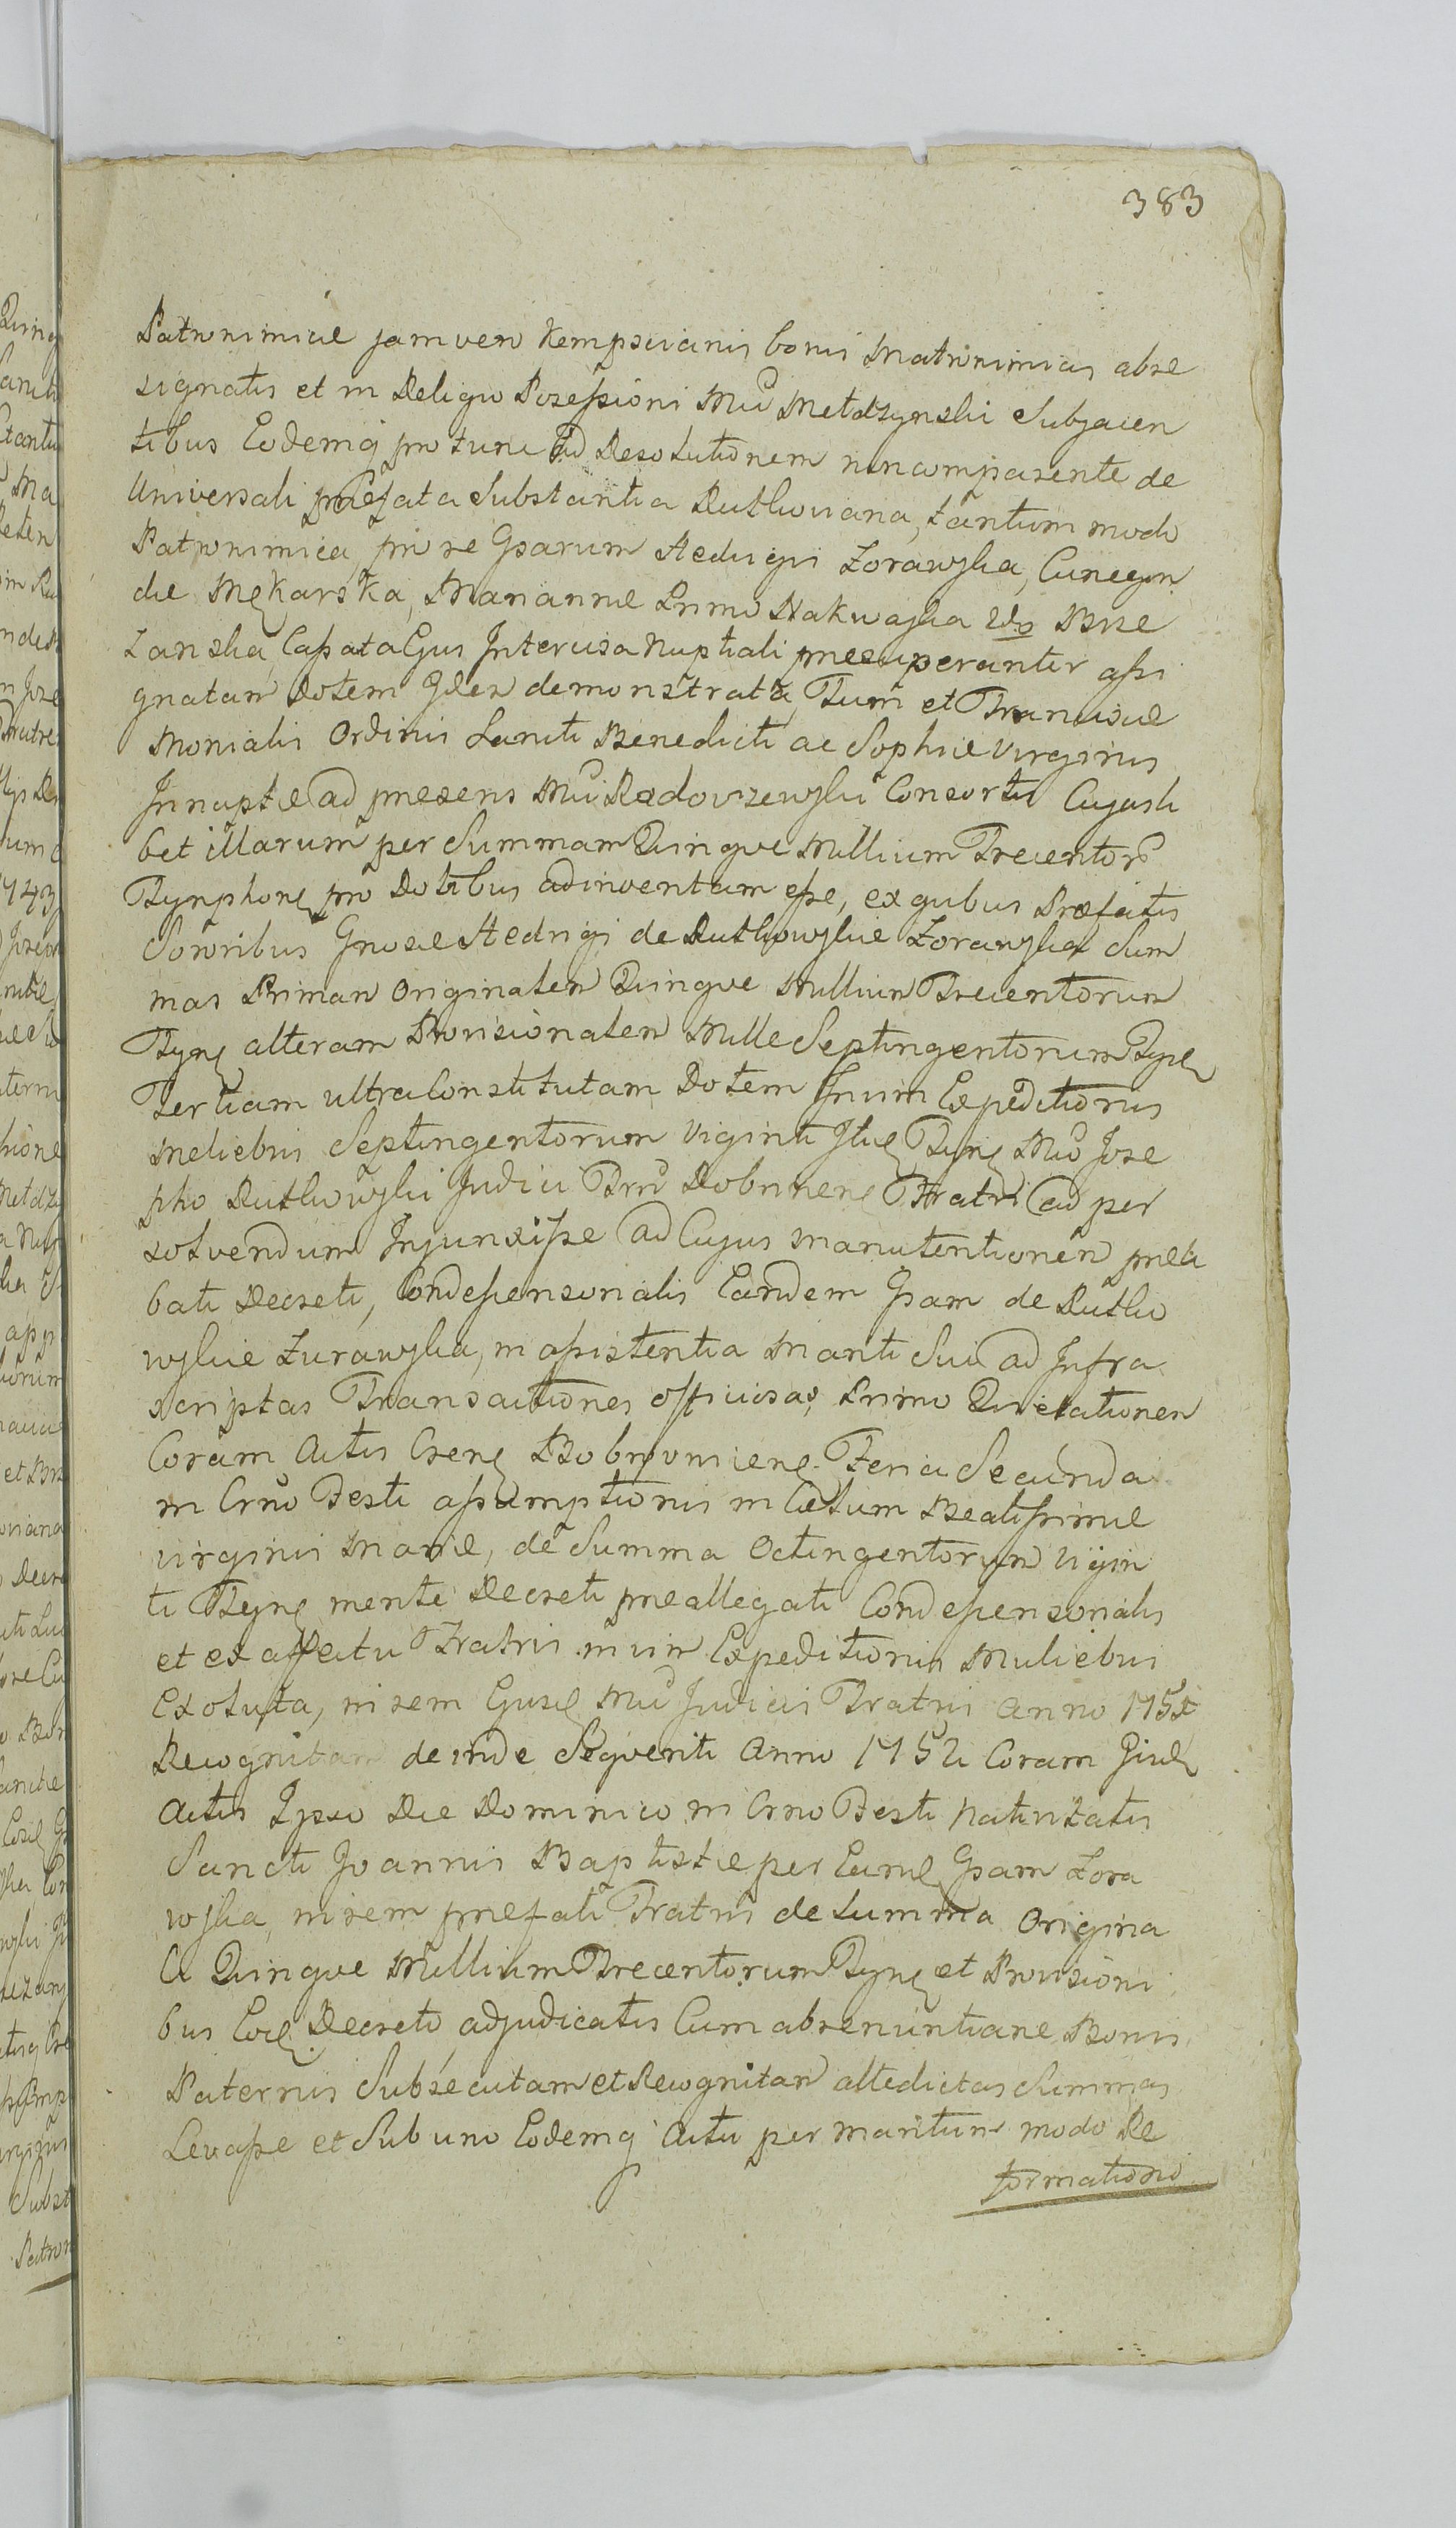 383
Patronimiae jam vero Kempscianis bonis Matronimicis abre
signatis et in Religio Possessioni Mci Metdzynski Subjacen
tibus Eodemq pro tunc ad Resolutionem non comparente de
Universali praefata Substantia Rutkoviana, tantum modo
Patronimica, pro re Gsarum Hedvigis Zorawska, Cunegun
dae Mękarska, Mariannae Primo Nakwaska 2do Brze
zanska Cassata Ejus Intercisa Nuptiali praesuperanter assi
gnatam Dotem Iden demonstrata, Tum et Franciscae
Monialis Ordinis Sancti Benedicti ac Sophiae Virginis
Innuptae ad praesens Mci Radoszewski Consortis Cujusli
bet illarum per Summam Quinque Millium Trecentor
Tynphonę pro Dotibus adinventam esse, ex qubus Praefatis
Sororibus Gnosae Hedvigi de Rutkowskie Zorawska Sum
mas Primam Originalem Quinque Millium Trecentorum
Tynę alteram Provisionalem Mille Septingentorum Tynę
Tertiam ultra Constitutam Dotem Invim Expeditionis
Meliebris Septingentorum Viginti Itidę Tynę Mco Jose
pho Rutkowski Judici Trri Dobrinenę Fratri ad per
solvendum Injunxisse ad Cujus manutentionem praeli
bati Decreti, Condescensorialis Eandem Gsam de Rutko
wskie Zurawska, in assistentia Mariti Sui ad Infra
scriptas Transactiones officiosas, Primo Quietationem
Coram Actis Crenę Bobrovnicenę Feria Secunda
in Crno Festi assumptionis in Caelum Beatissimae
virginis Mariae, de Summa Octingentorum Vigin
ti Tynę mente Decreti praeallegati Condescensorialis
et ex affectu Fratris in vim Expeditionis Muliebris
Exoluta, in rem Ejusdę Mci Judicis Fratris Anno 175
Recognitam deinde Sequenti Anno 1752 Coram Iisdę
Actis Ipso Die Dominico in Crno Festi Nativitatis
Sancti Joannis Baptistae per Eamdę Gsam Zora
wska, in rem praefati Fratris de Summa Origina
li Quinque Millium Trecentorum Tynę et Provisioni
bus Eodę Decreto adjudicatis Cum abrenuntiane Bonis
Paternis Subsecutam et Recognitam attedictas Summas
Levasse et Sub uno Eodemq Actu per maritum modo Re
formationis